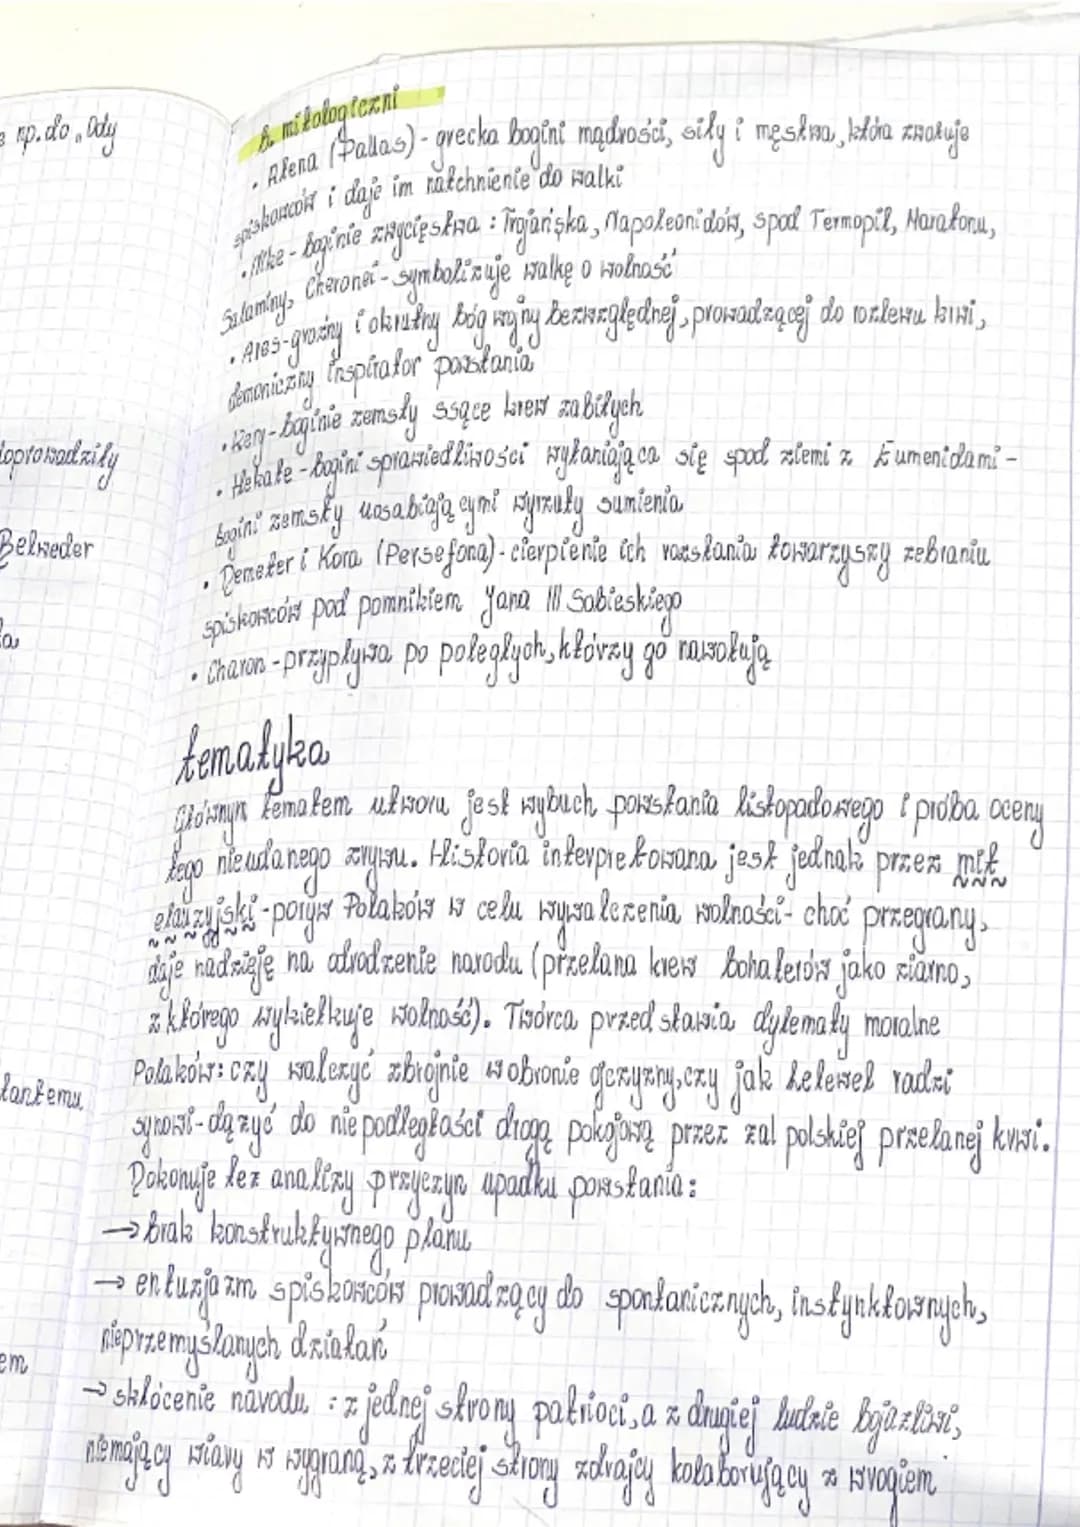 e np. do „Ody
doprowadziły
Belweder
lantemu
em
b. mitologiczni
• Atena (Pallas) - grecka bogini mądrości, siły i męstwa, która zwołuje
spiskowców i daje im natchnienie do walki
• Nike - boginie zwycięstwa : Trojańska, Napoleonidów, spod Termopil, Maratonu,
Salaminy, Cheronei - symbolizuje walkę o wolność
• Ares - groźny i okrutny bóg wojny bezwzględnej, prowadzącej do rozlewu krwi,
demoniczny inspirator powstania
• Kery - boginie zemsty ssące krew zabitych
• Hekate - bogini sprawiedliwości wyłaniająca się spod ziemi z Eumenidami -
bogini zemsty uosabiającymi wyrzuty sumienia
• Demeter i Kora (Persefona) - cierpienie ich rozstania towarzyszy zebraniu
spiskowców pod pomnikiem Jana III Sobieskiego
• Charon - przypływa po poległych, którzy go nawołują
tematyka
Głównym tematem utworu jest wybuch powstania listopadowego i próba oceny
tego nieudanego zrywu. Historia interpretowana jest jednak przez mit
elauzyjski - poryw Polaków w celu wywalczenia wolności - choć przegrany,
daje nadzieję na odrodzenie narodu (przelana krew bohaterów jako ziarno,
z którego wykiełkuje wolność). Twórca przedstawia dylematy moralne
Polaków: czy walczyć zbrojnie w obronie ojczyzny, czy jak Lelewel radzi
synowi - dążyć do niepodległości drogą pokojową przez żal polskiej przelanej krwi.
Dokonuje też analizy przyczyn upadku powstania :
→ brak konstruktywnego planu
→ entuzjazm spiskowców prowadzący do spontanicznych, instynktownych,
nieprzemyślanych działań
→ skłócenie narodu : z jednej strony patrioci, a z drugiej ludzie bojaźliwi,
niemający wiary w wygraną, z trzeciej strony zdrajcy kolaborujący z wrogiem